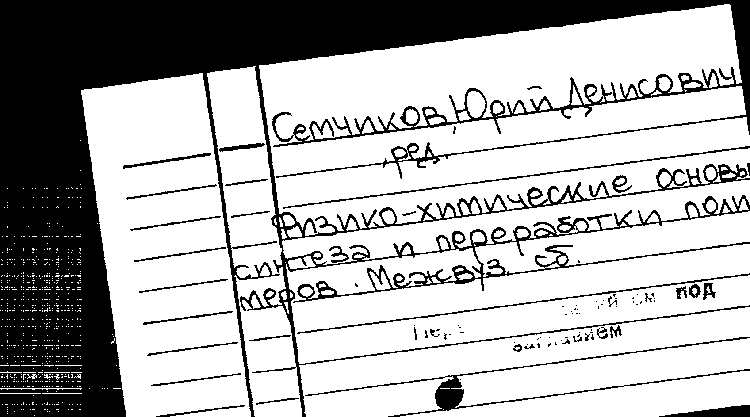 Семчиков, Юрий Денисович
ред.
Физико-химические основы
синтеза и переработки поли
меров. Межвуз. сб.
см под
заглавием